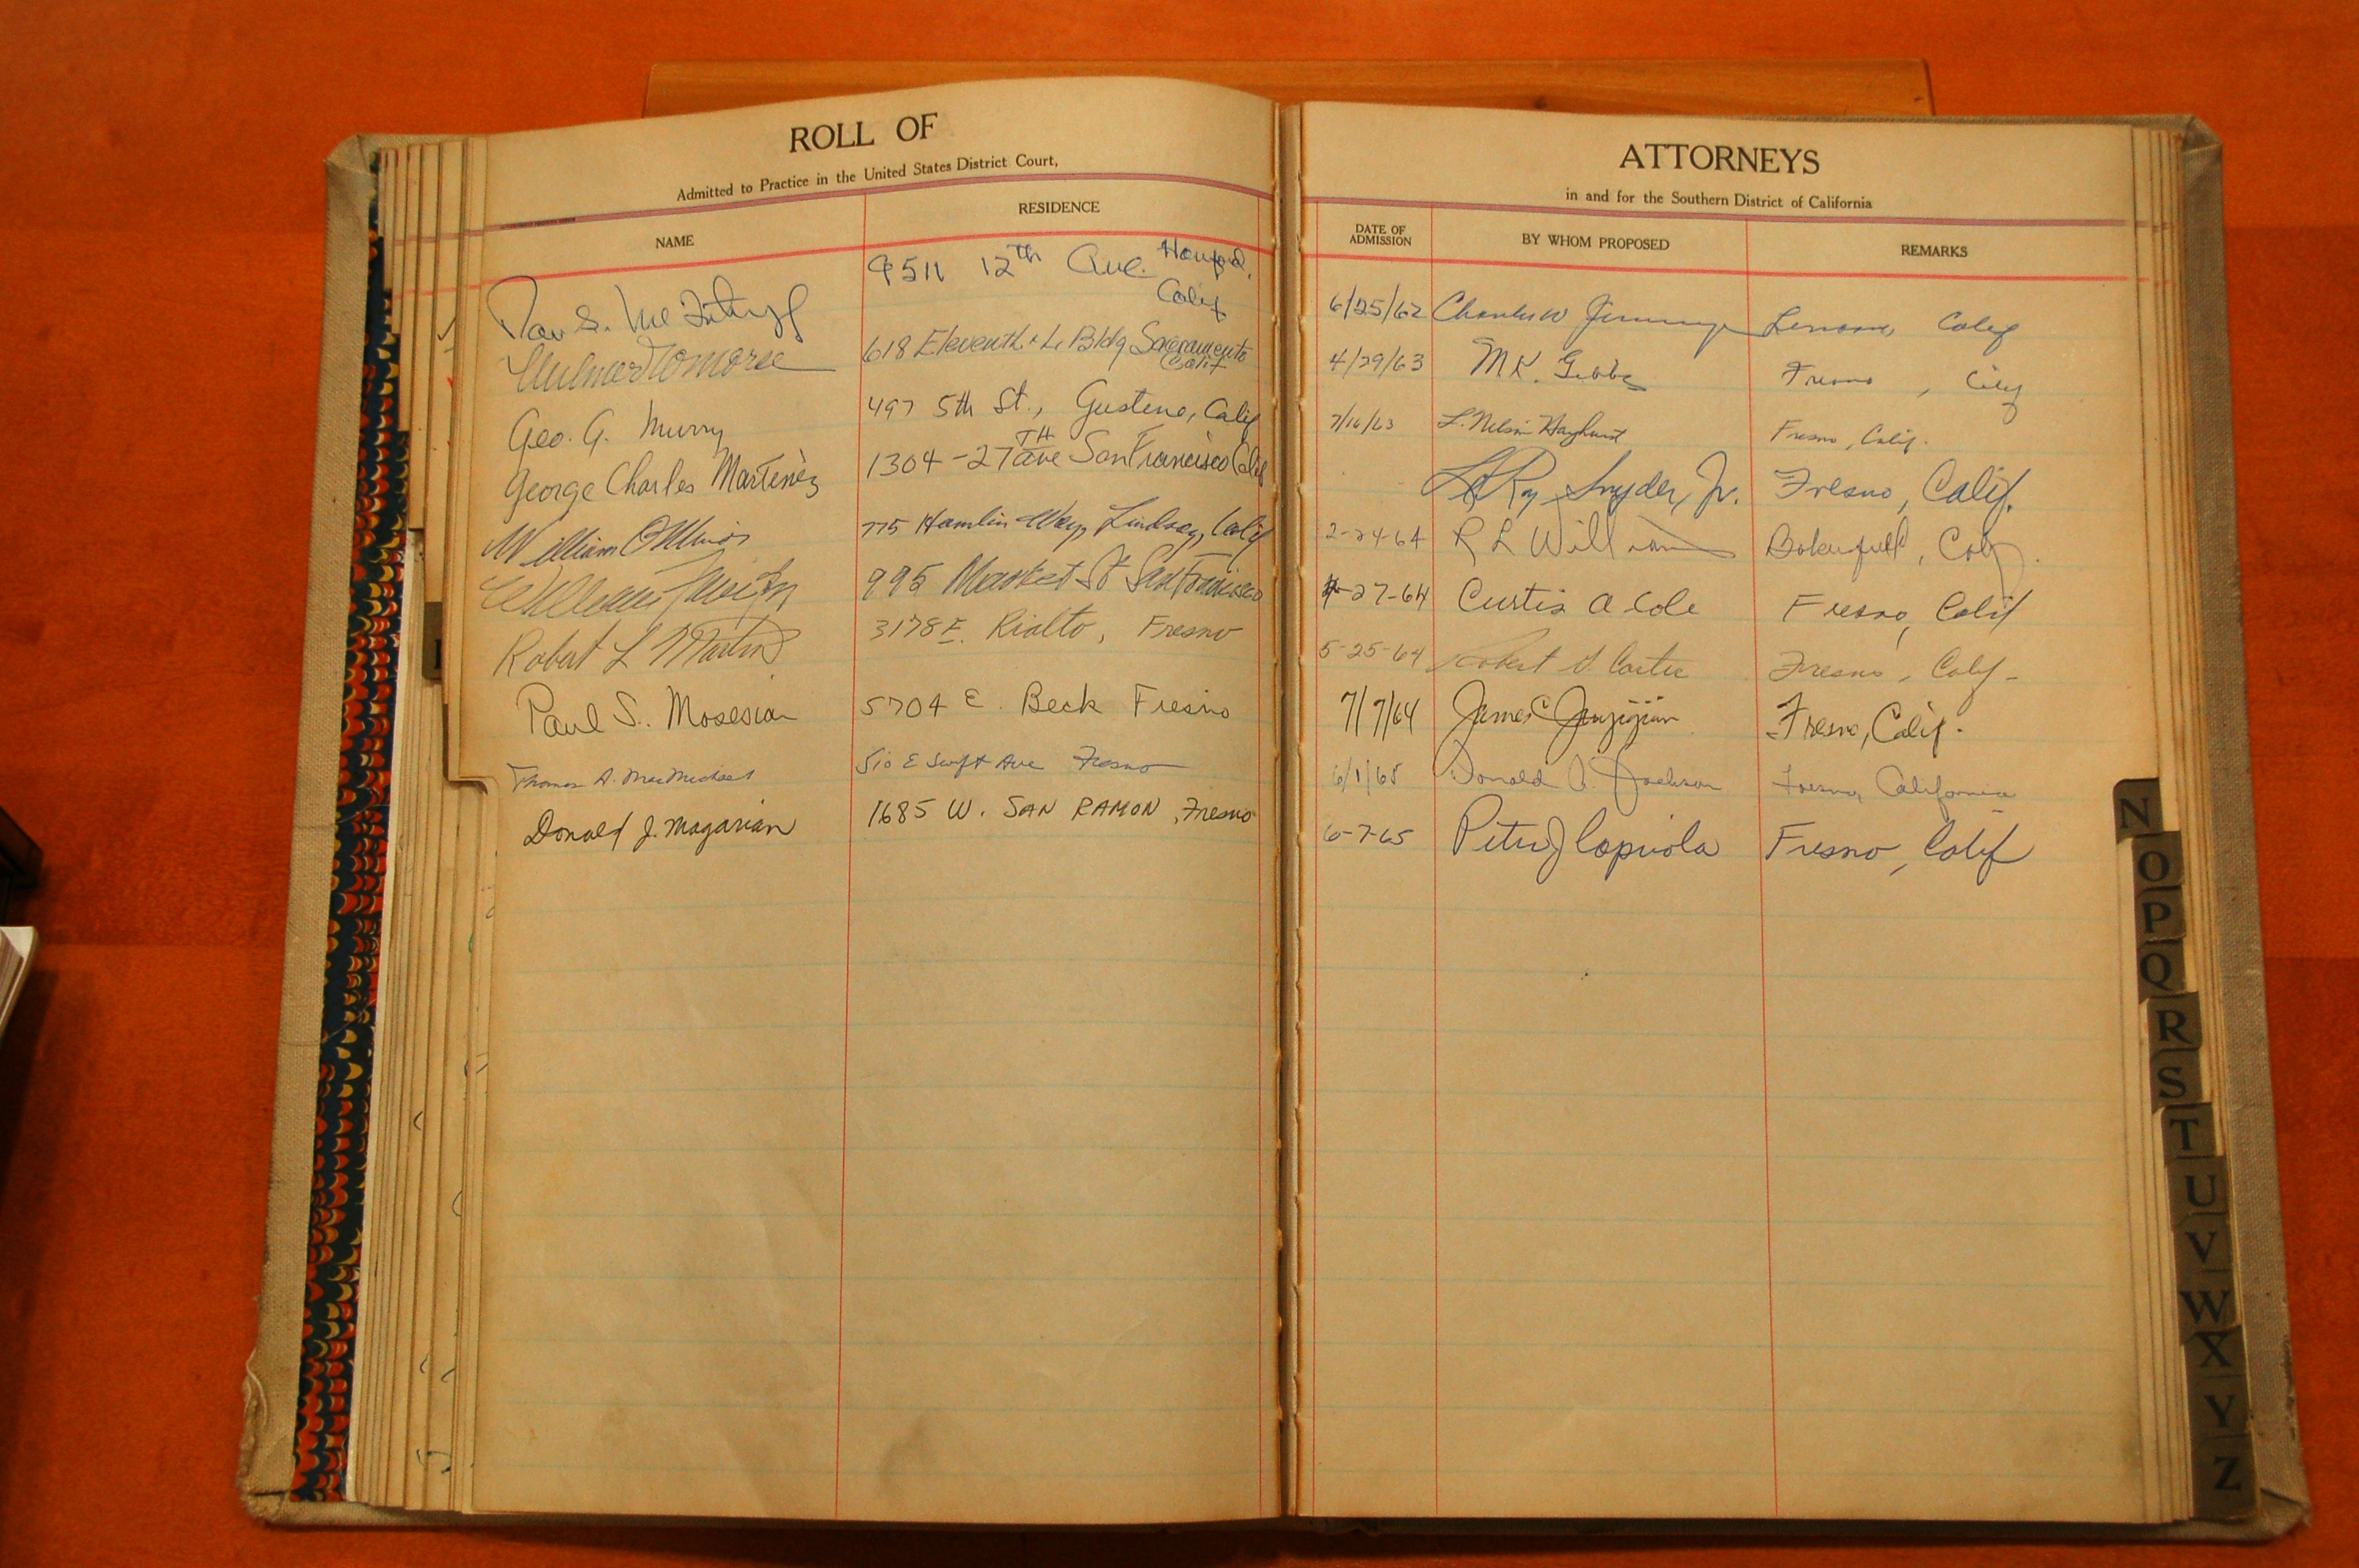 ROLL OF
Admitted to Practice in the United States District Court,
NAME
RESIDENCE
ATTORNEYS
in and for the Southern District of California
DATE OF ADMISSION
BY WHOM PROPOSED
REMARKS
9511 12th Ave. Hanford, Calif
6/25/62 Charles W Jennings Lemoore, Calif
618 Eleventh & L Bldg Sacramento Calif
4/29/63 M K. Gibbs Fresno, Calif
Geo. G. Murry 497 5th St., Gustine, Calif
7/16/63 L. Nelson Hayhurst Fresno, Calif.
George Charles Martinez 1304 - 27TH Ave San Francisco Calif
LeRoy Snyder, Jr. Fresno, Calif.
William O Minor 775 Hamlin Way, Lindsay, Calif
2-24-64 R L Williams Bakersfield, Calif.
William 995 Market St San Francisco
4-27-64 Curtis A Cole Fresno, Calif
Robert L Martin 3178 E. Rialto, Fresno
5-25-64 Robert Carter Fresno, Calif-
Paul S. Mosesian 5704 E. Beck Fresno
7/7/64 James C Fresno, Calif.
Thomas A. MacMichael 510 E Swift Ave Fresno
6/1/65 Donald A. Jackson Fresno, California
Donald J. Magarian 1685 W. SAN RAMON, Fresno
6-7-65 Peter J Capriola Fresno, Calif
N
O
P
Q
R
S
T
U
V
W
X
Y
Z